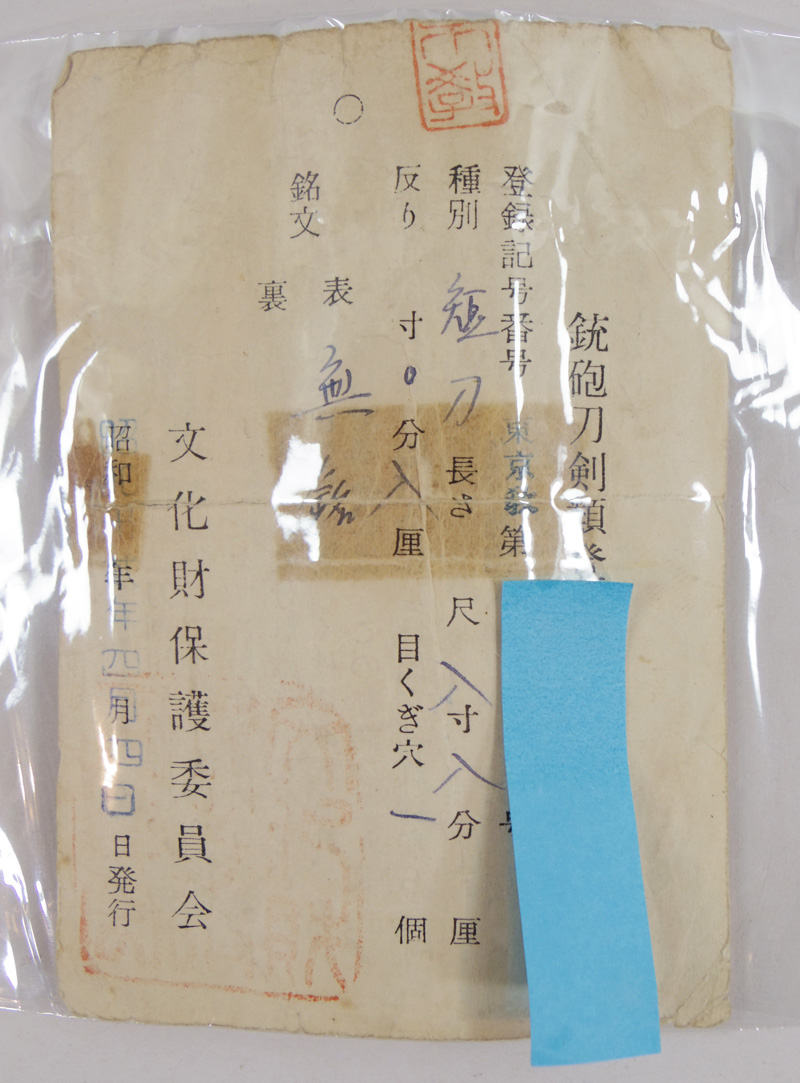 銃砲刀剣類登
登録記号番号 東京教第 号
種別 短刀 長さ 尺 八寸 八分 厘
反り 寸 0分 八厘 目くぎ穴 一個
銘文 表 無銘
裏
文化財保護委員会
昭和 年 年四月四日 日発行